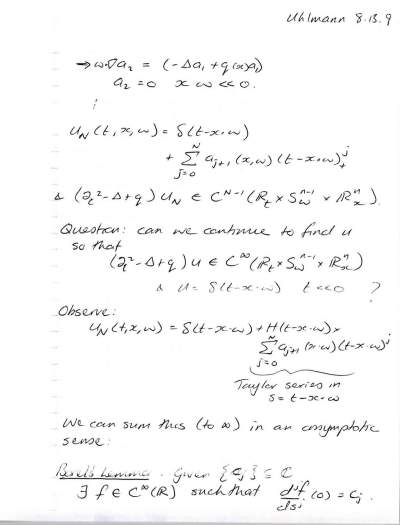 Uhlmann 8.13.9
→ ω·∇a₂ = (-Δa₁ + q(x)a₁)
a₂ = 0 x·ω << 0.
⋮
u_N(t,x,ω) = δ(t-x·ω)
+ Σ_{j=0}^{N} a_{j+1}(x,ω)(t-x·ω)₊^j
& (∂_t²-Δ+q) u_N ∈ C^{N-1}(ℝ_t × S_ω^{n-1} × ℝ_x^n).
Question: can we continue to find u
so that
(∂_t²-Δ+q) u ∈ C^∞(ℝ_t × S_ω^{n-1} × ℝ_x^n)
& u = δ(t-x·ω) t<<0 ?
Observe:
u_N(t,x,ω) = δ(t-x·ω) + H(t-x·ω) ×
Σ_{j=0}^{N} a_{j+1}(x·ω)(t-x·ω)^j
Taylor series in
s = t-x·ω
We can sum this (to ∞) in an asymptotic
sense:
Borel's Lemma. Given {c_j} ⊆ ℂ
∃ f ∈ C^∞(ℝ) such that d^jf/ds^j (0) = c_j.